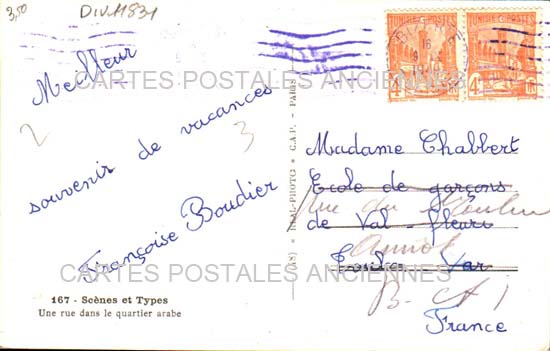 3,50
DIV.11831
TUNISIE POSTES
TUNISIE POSTES
4F
4F
16
Meilleur
souvenir de vacances
Françoise Boudier
2
3
CARTES POSTALES ANCIENNES
RÉAL-PHOTO • C.A.P. • PARIS
Madame Chabbert
Ecole de garçons
rue du Moulin
de Val-fleuri
Toulon Var
B. A
France
CARTES POSTALES ANCIENNES
167 - Scènes et Types
Une rue dans le quartier arabe